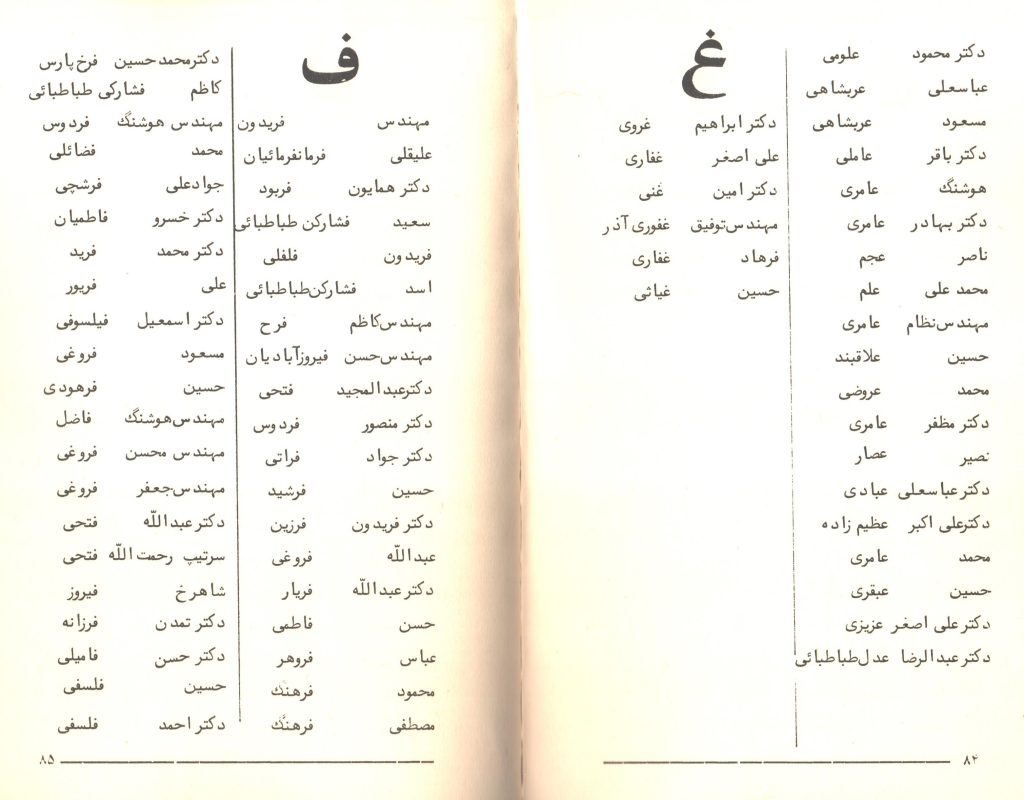 دکتر محمود علومی
عباسعلی عربشاهی
مسعود عربشاهی
دکتر باقر عاملی
هوشنگ عامری
دکتر بهادر عامری
ناصر عجم
محمد علی علم
مهندس نظام عامری
حسین علاقبند
محمد عروضی
دکتر مظفر عامری
نصیر عصار
دکتر عباسعلی عبادی
دکتر علی اکبر عظیم زاده
محمد عامری
حسین عبقری
دکتر علی اصغر عزیزی
دکتر عبدالرضا عدل طباطبائی
غ
دکتر ابراهیم غروی
علی اصغر غفاری
دکتر امین غنی
مهندس توفیق غفوری آذر
فرهاد غفاری
حسین غیاثی
۸۴
ف
مهندس فریدون
علیقلی فرمانفرمائیان
دکتر همایون فربود
سعید فشارکن طباطبائی
فریدون فلفلی
اسد فشارکن طباطبائی
مهندس کاظم فرح
مهندس حسن فیروزآبادیان
دکتر عبدالمجید فتحی
دکتر منصور فردوس
دکتر جواد فراتی
حسین فرشید
دکتر فریدون فرزین
عبداللّه فروغی
دکتر عبداللّه فریار
حسن فاطمی
عباس فروهر
محمود فرهنگ
مصطفی فرهنگ
دکتر محمد حسین فرخ پارس
کاظم فشارکی طباطبائی
مهندس هوشنگ فردوس
محمد فضائلی
جوادعلی فرشچی
دکتر خسرو فاطمیان
دکتر محمد فرید
علی فریور
دکتر اسمعیل فیلسوفی
مسعود فروغی
حسین فرهودی
مهندس هوشنگ فاضل
مهندس محسن فروغی
مهندس جعفر فروغی
دکتر عبداللّه فتحی
سرتیپ رحمت اللّه فتحی
شاهرخ فیروز
دکتر تمدن فرزانه
دکتر حسن فامیلی
حسین فلسفی
دکتر احمد فلسفی
۸۵